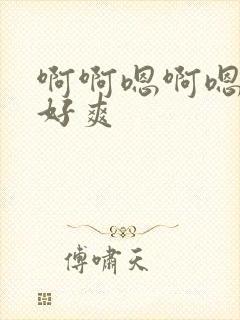 啊啊嗯啊嗯
好爽
傅啸天